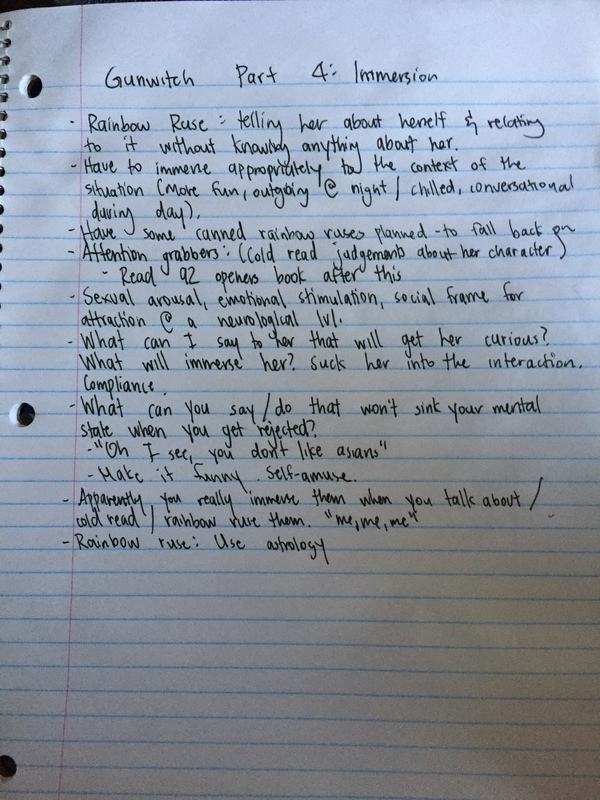 Gunwitch Part 4: Immersion
- Rainbow Ruse: telling her about herself & relating
to it without knowing anything about her.
- Have to immerse appropriately to the context of the
situation (more fun, outgoing @ night / chilled, conversational
during day).
- Have some canned rainbow ruses planned - to fall back on
- Attention grabbers: (Cold read judgements about her character)
- Read 92 openers book after this
- Sexual arousal, emotional stimulation, social frame for
attraction @ a neurological lvl.
- What can I say to her that will get her curious?
What will immerse her? Suck her into the interaction.
Compliance.
- What can you say/do that won't sink your mental
state when you get rejected?
- "Oh I see, you don't like asians"
- Make it funny. Self-amuse.
- Apparently, you really immerse them when you talk about /
cold read / rainbow ruse them. "me, me, me"
- Rainbow ruse: Use astrology